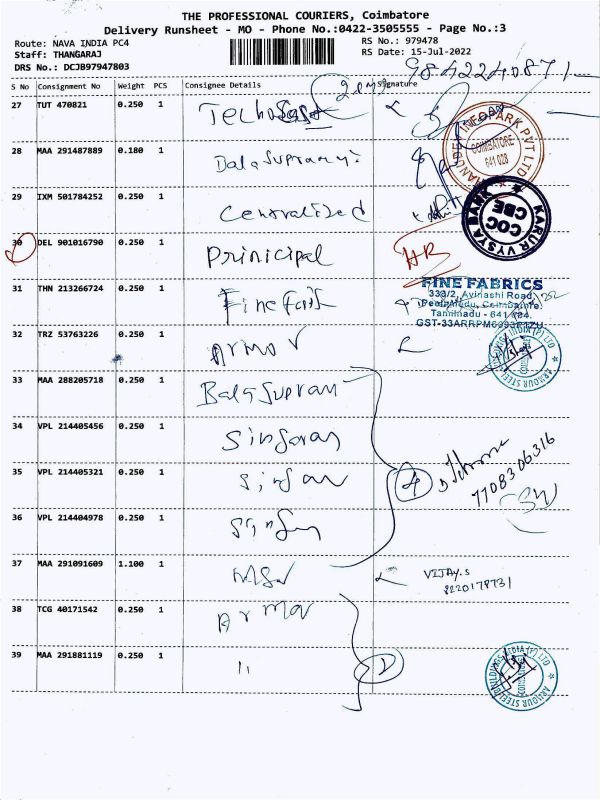 THE PROFESSIONAL COURIERS, Coimbatore
Delivery Runsheet - MO - Phone No.:0422-3505555 - Page No.:3
Route: NAVA INDIA PC4 RS No.: 979478
Staff: THANGARAJ RS Date: 15-Jul-2022
DRS No.: DCJB97947803
9842240871
S No Consignment No Weight PCS Consignee Details Signature
27 TUT 470821 0.250 1
INFOPARK PVT LTD
COIMBATORE
641 028
28 MAA 291487889 0.180 1
29 IXM 501784252 0.250 1 Centralized
KARUR VYSYA BANK
COC
CBE
30 DEL 901016790 0.250 1 Prinicipal HR
31 THN 213266724 0.250 1 Finefab
FINE FABRICS
333/2, Avinashi Road,
Peelamedu, Coimbatore.
Tamilnadu - 641 004.
32 TRZ 53763226 0.250 1 Armor
33 MAA 288205718 0.250 1 Balasupram
34 VPL 214405456 0.250 1 Singaran
35 VPL 214405321 0.250 1
4
7708306316
36 VPL 214404978 0.250 1
37 MAA 291091609 1.100 1
VIJAY.S
8220178731
38 TCG 40171542 0.250 1 Armor
39 MAA 291881119 0.250 1 11
2